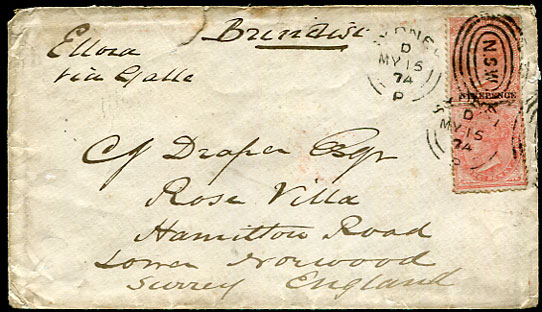 Brindisi
Ellora
via Galle
SYDNEY
D
MY 15
74
P
N.S.W
NINEPENCE
D
MY 15
74
P
C J Draper Esqr
Rose Villa
Hamilton Road
Lower Norwood
Surrey England